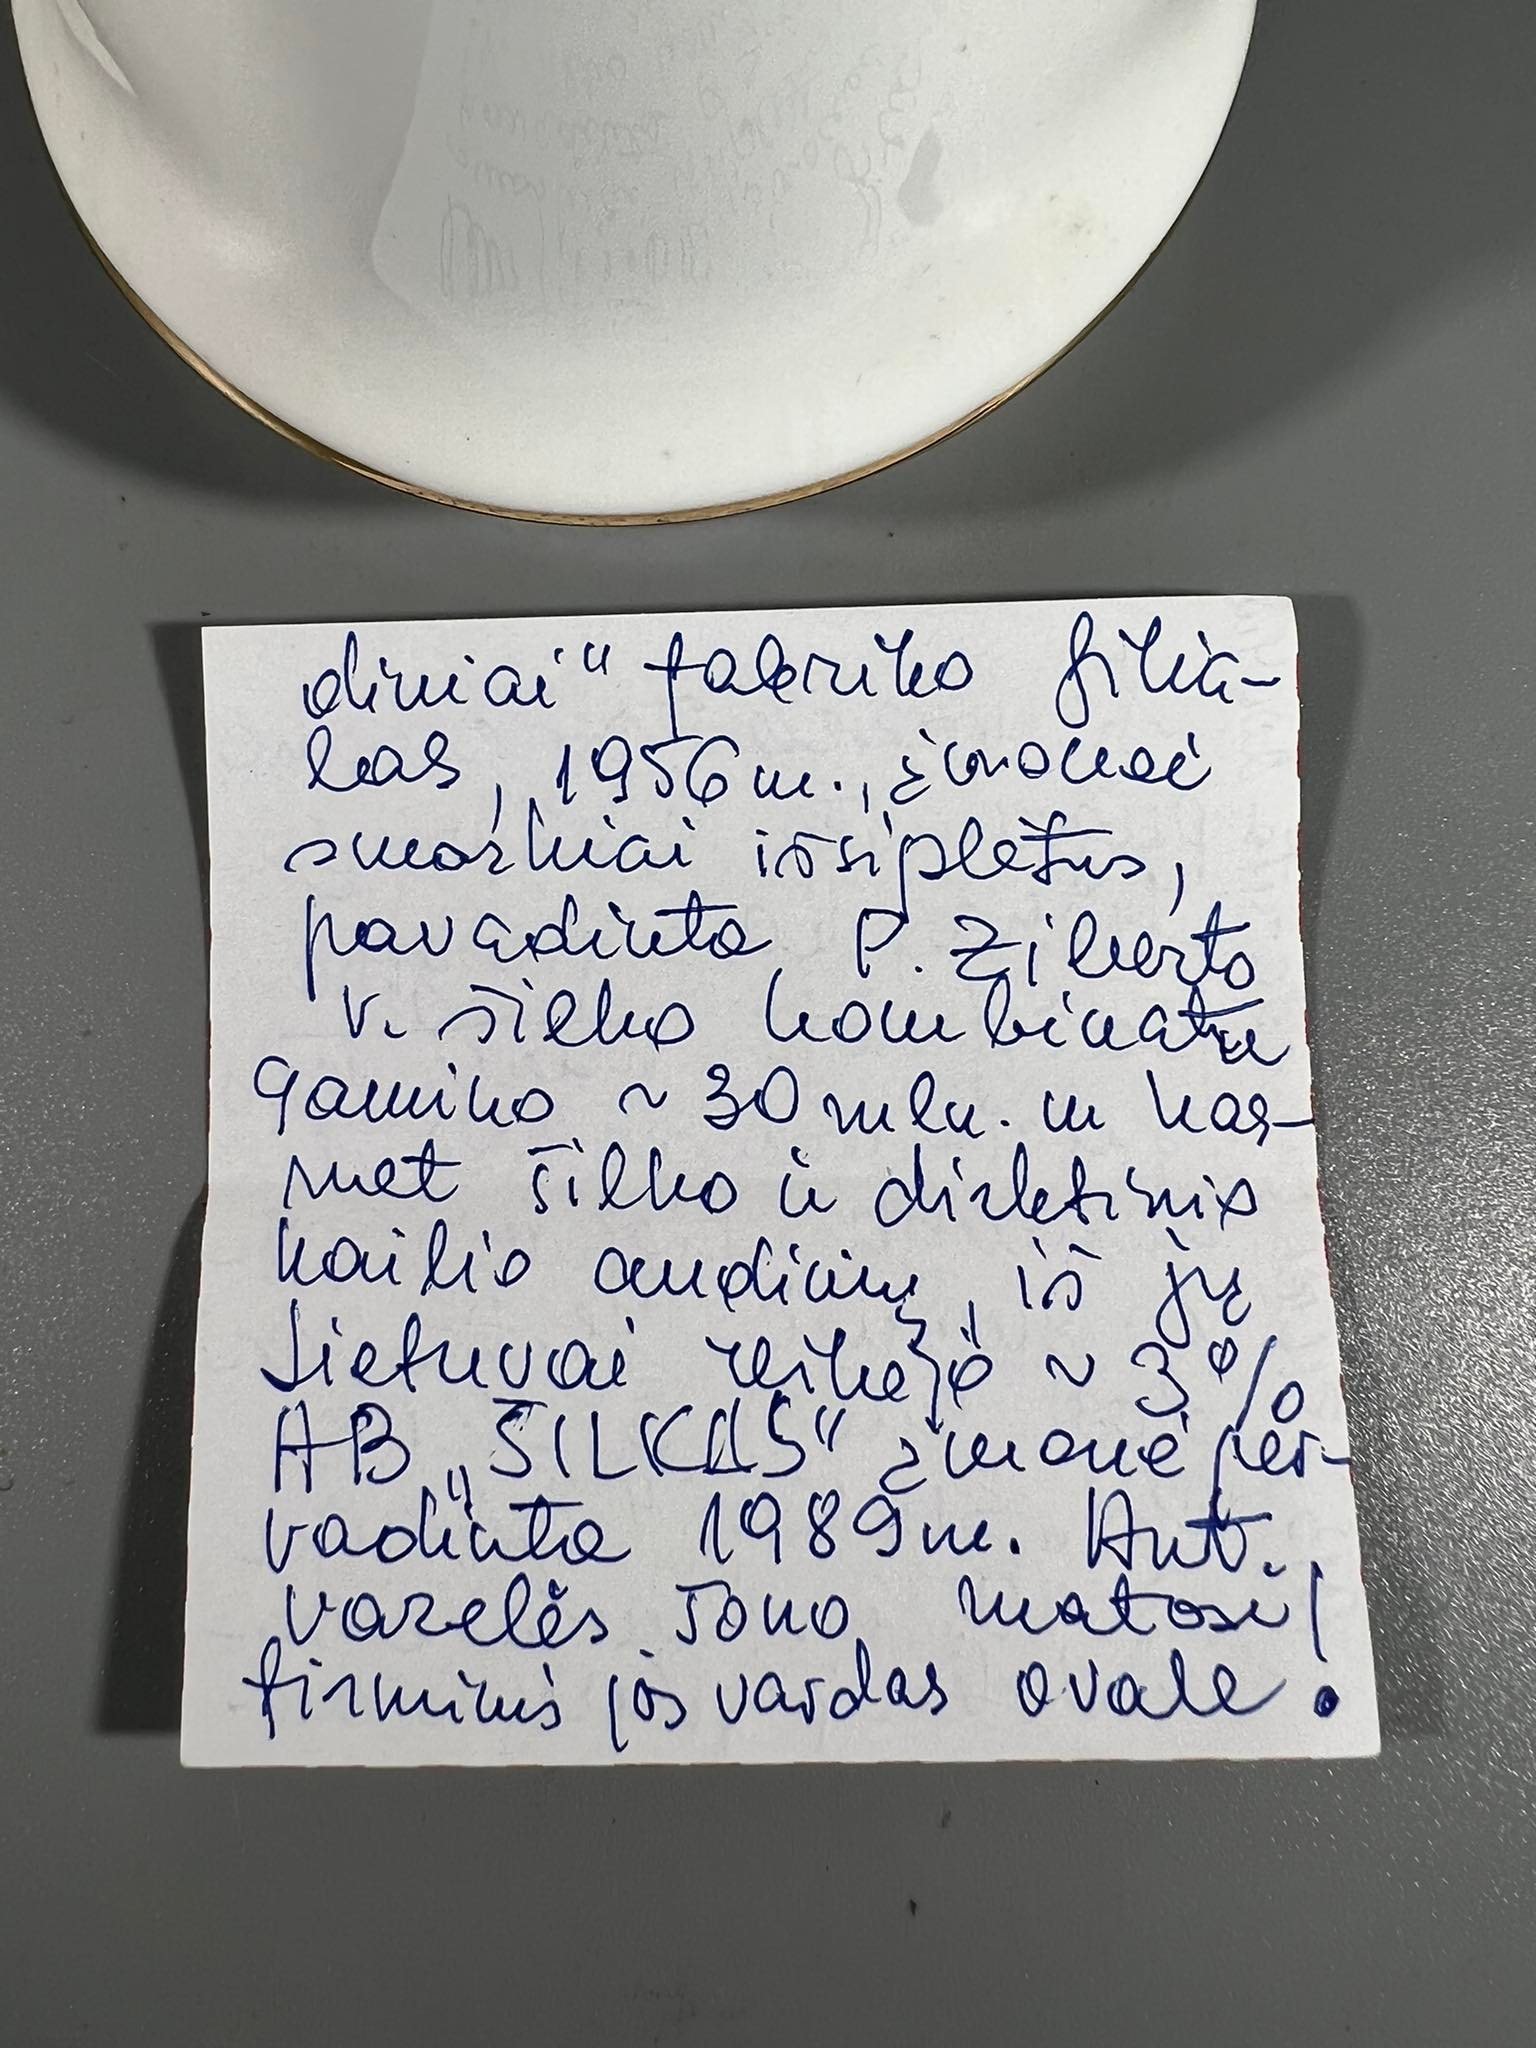 diniai“ fabriko filia-
las, 1956 m., įmonei
smarkiai išsiplėtus,
pavadinta P. Ziberto
v. šilko kombinatu
gamino ~ 30 mln. m kas-
met šilko ir dirbtinio
kailio audinių, iš jų
Lietuvai reikėjo ~ 3%
AB „ŠILKAS“ įmonė per-
vadinta 1989 m. Ant
vazelės šono matosi
firminis jos vardas ovale!